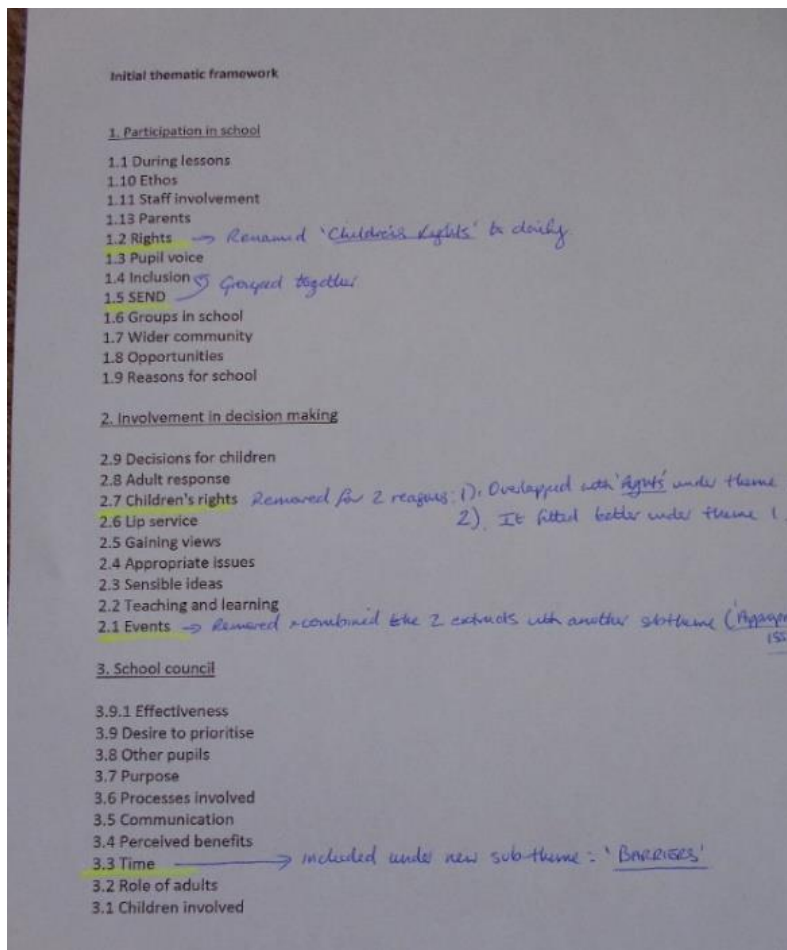 Initial thematic framework
1. Participation in school
1.1 During lessons
1.10 Ethos
1.11 Staff involvement
1.13 Parents
1.2 Rights → Renamed 'Children's Rights' to
1.3 Pupil voice
1.4 Inclusion
1.5 SEND Grouped together
1.6 Groups in school
1.7 Wider community
1.8 Opportunities
1.9 Reasons for school
2. Involvement in decision making
2.9 Decisions for children
2.8 Adult response
2.7 Children's rights Removed for 2 reasons: 1). Overlapped with 'Rights' under theme
2). It fitted better under theme 1.
2.6 Lip service
2.5 Gaining views
2.4 Appropriate issues
2.3 Sensible ideas
2.2 Teaching and learning
2.1 Events → Removed + combined the 2 extracts with another subtheme (
3. School council
3.9.1 Effectiveness
3.9 Desire to prioritise
3.8 Other pupils
3.7 Purpose
3.6 Processes involved
3.5 Communication
3.4 Perceived benefits
3.3 Time → included under new sub-theme: 'BARRIERS'
3.2 Role of adults
3.1 Children involved